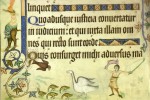 linquet
Quoadusque iusticia conuertatur
in iudicium: et qui iuxta illam om
nes qui recto sunt corde
Quis consurget michi aduersus ma